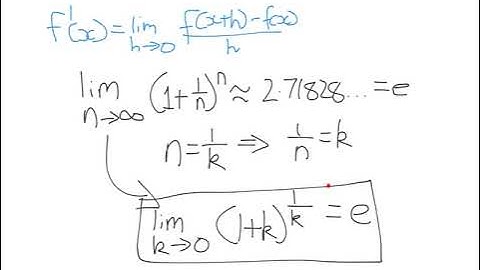 f'(x) = lim h→0 f(x+h) - f(x) / h
lim n→∞ (1 + 1/n)^n ≈ 2.71828... = e
n = 1/k ⇒ 1/n = k
lim k→0 (1+k)^(1/k) = e